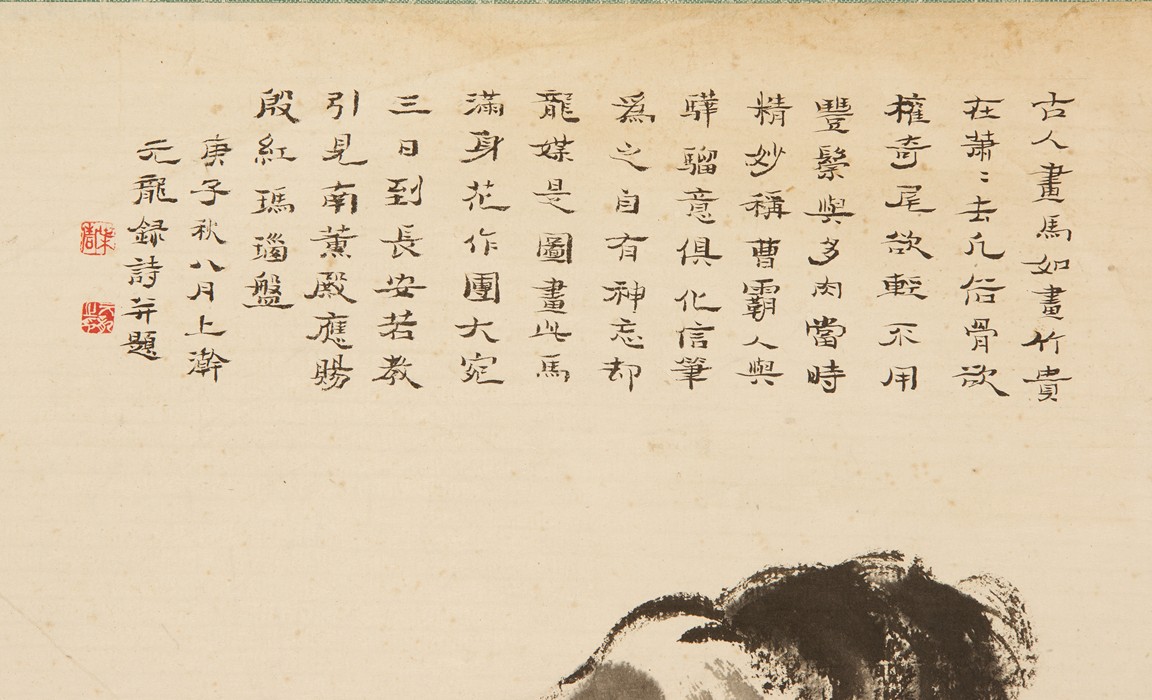 古人畫馬如畫竹貴
在蕭〻去凡俗骨欲
權奇尾欲輕不用
豐鬃與多肉當時
精妙稱曹霸人與
驊騮意俱化信筆
爲之自有神忘却
龍媒是圖畫此馬
滿身花作團大宛
三日到長安若教
引見南薰殿應賜
殷紅瑪瑙盤
庚子秋八月上澣
元龍録詩并題